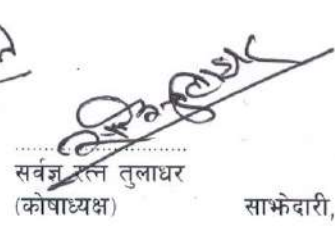 सर्वज्ञ रत्न तुलाधर
(कोषाध्यक्ष) साझेदारी,